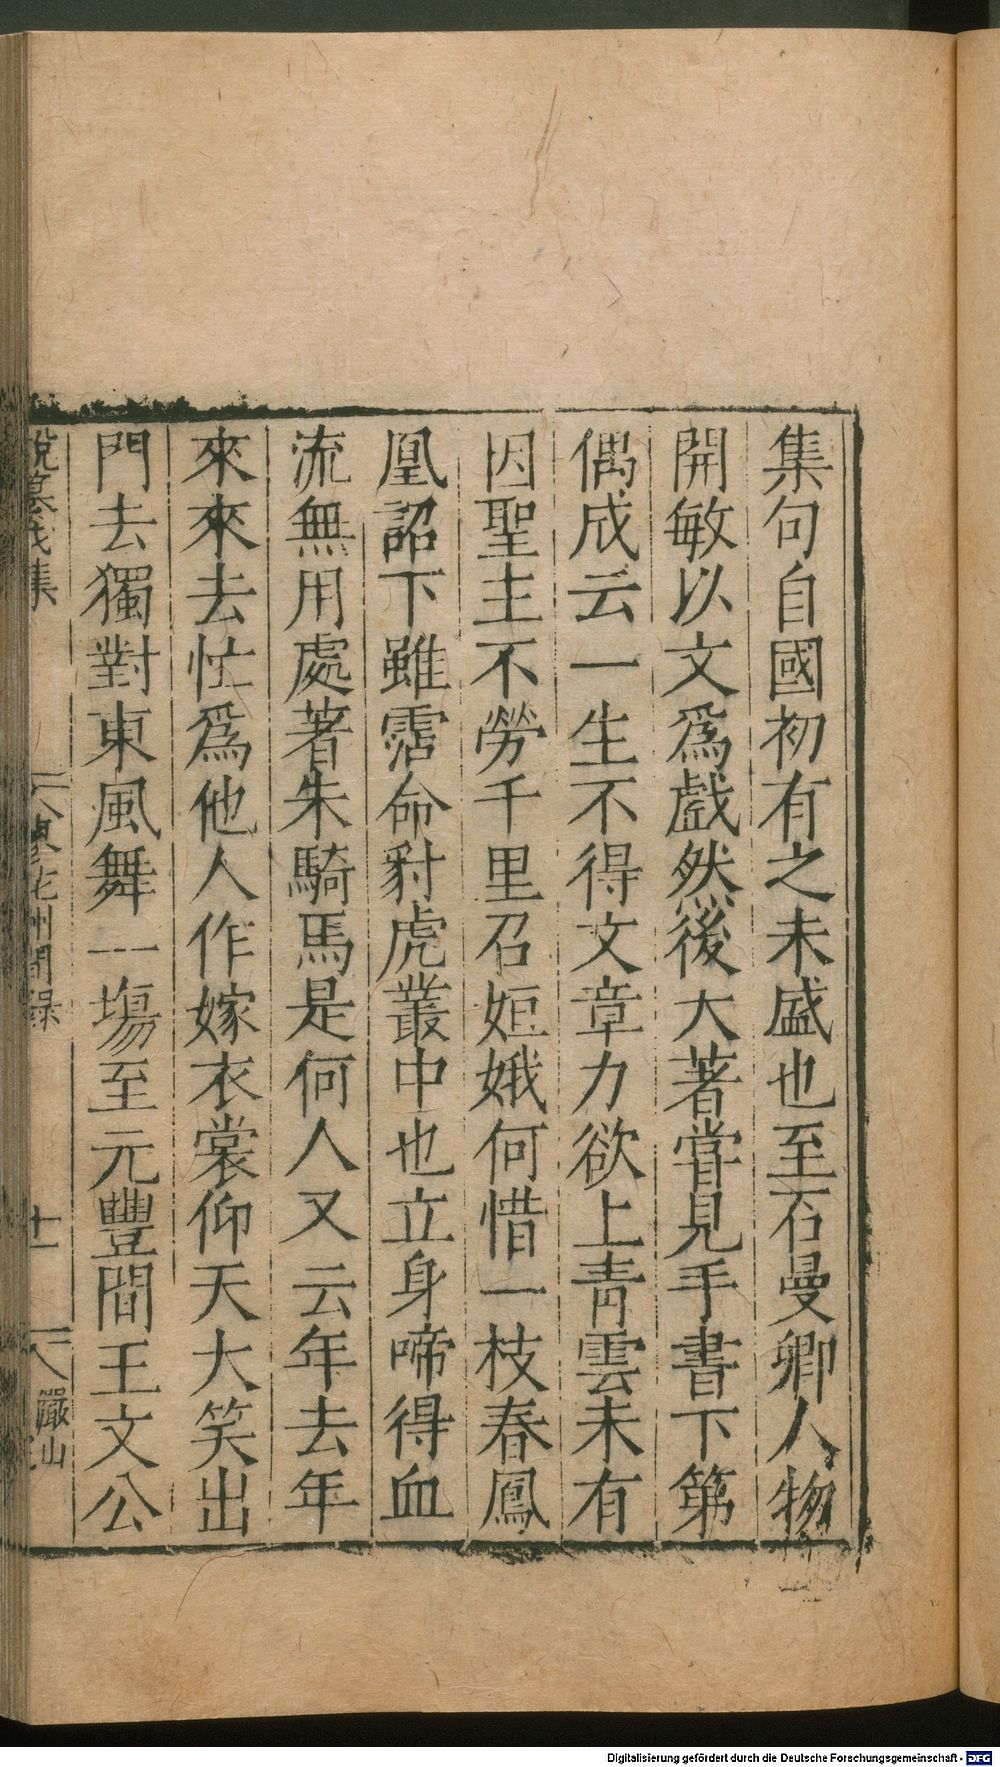 集句自國初有之未盛也至石曼卿人物
開敏以文爲戲然後大著甞見手書下第
偶成云一生不得文章力欲上青雲未有
因聖主不勞千里召姮娥何惜一枝春鳳
凰詔下雖霑命豺虎叢中也立身啼得血
流無用處著朱騎馬是何人又云年去年
來來去忙爲他人作嫁衣裳仰天大笑出
門去獨對東風舞一塲至元豐間王文公
集
東花州閒錄
十一
嚴山
Digitalisierung gefördert durch die Deutsche Forschungsgemeinschaft - DFG